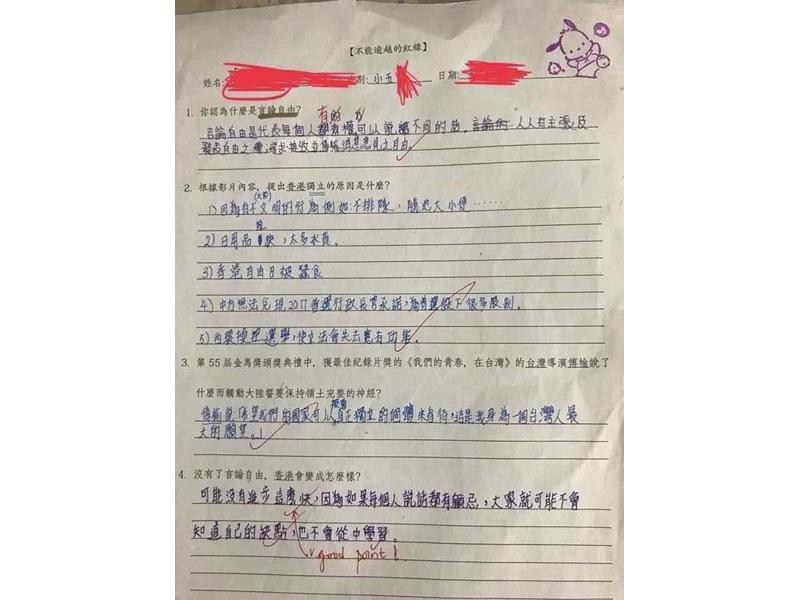 【不能逾越的紅線】
姓名: 別: 小五 日期:
1. 你認為什麼是言論自由?
有的
言論自由是代表每個人都有權可以說話不同的話,言論的人人有主張及
發表自由之權,尋求接收並傳輸消息意見之自由。
2. 根據影片內容,提出香港獨立的原因是什麼?
1) 因為有不文明的行為例如:不排隊、隨地大小便……
2) 日用品短缺,太多水貨。
3) 香港自由日被蠶食
4) 中方無法兌現2017普選行政長官承諾,為普選設下很多限制。
5) 西環操控選舉,使立法會失去應有功能。
3. 第55屆金馬獎頒獎典禮中,獲最佳紀錄片獎的《我們的青春,在台灣》的台灣導演傅榆說了
什麼而觸動大陸誓要保持領土完整的神經?
傅榆說:「希望我們的國家可以被當真正獨立的個體來看待,這是我身為一個台灣人最
大的願望。」
4. 沒有了言論自由,香港會變成怎麼樣?
可能沒有進步這麼快,因為如果每個人說話都有顧忌,大眾就可能不會
知道自己的缺點,也不會從中學習。
good point!